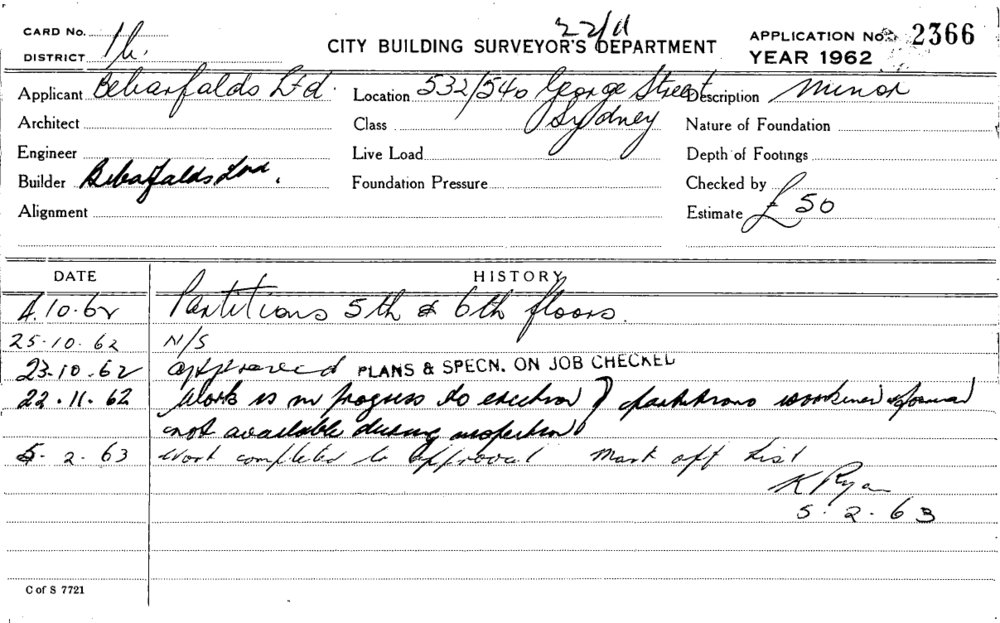 CARD No. 16.
22/11
DISTRICT
CITY BUILDING SURVEYOR'S DEPARTMENT
APPLICATION No. 2366
YEAR 1962
Applicant Bebarfalds Ltd.
Location 532/540 George Street
Sydney
Description Minor
Architect
Class
Nature of Foundation
Engineer
Live Load
Depth of Footings
Builder Bebarfalds
Foundation Pressure
Checked by
Alignment
Estimate £50
DATE HISTORY
4.10.62 Partitions 5th & 6th floors.
25.10.62 N/S
23.10.62 approved PLANS & SPECN. ON JOB CHECKED
22.11.62 Work is in progress to erection of partitions workmen &
not available during inspection
5.2.63 Work completed to approval Mark off List
K Ryan
5.2.63
C of S 7721